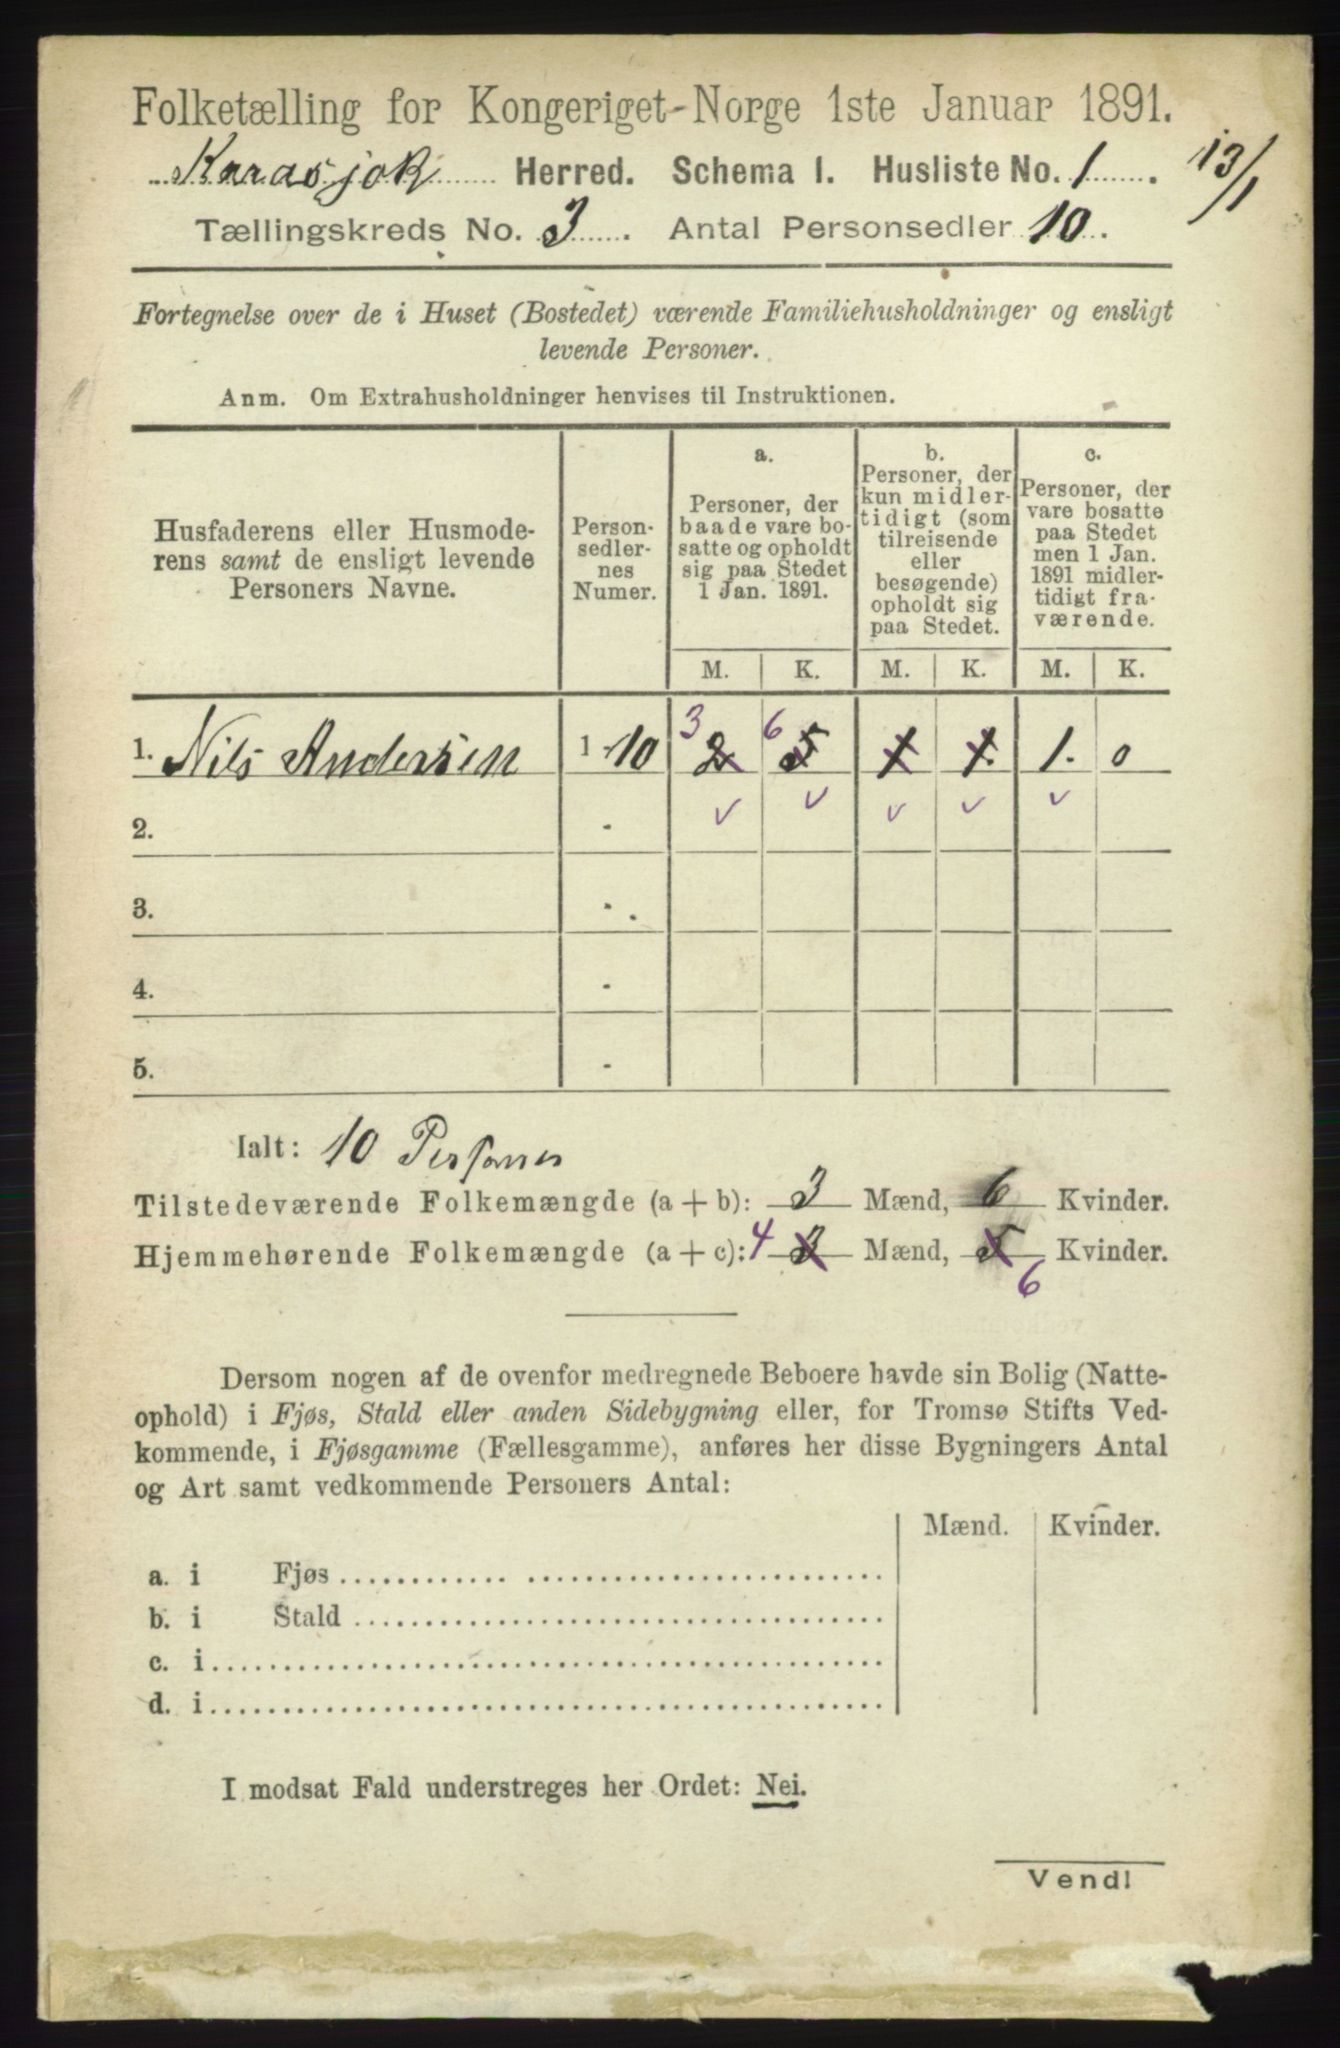 Folketælling for Kongeriget Norge 1ste Januar 1891.
Karasjok Herred. Schema I. Husliste No. 1.
13/1
Tællingskreds No. 3. Antal Personsedler 10.
Fortegnelse over de i Huset (Bostedet) værende Familiehusholdninger og ensligt
levende Personer.
Anm. Om Extrahusholdninger henvises til Instruktionen.
Husfaderens eller Husmode-
rens samt de ensligt levende
Personers Navne.
Person-
sedler-
nes
Numer.
a.
Personer, der
baade vare bo-
satte og opholdt
sig paa Stedet
1 Jan. 1891.
b.
Personer, der
kun midler-
tidigt (som
tilreisende
eller
besøgende)
opholdt sig
paa Stedet.
c.
Personer, der
vare bosatte
paa Stedet
men 1 Jan.
1891 midler-
tidigt fra-
værende.
M. K. M. K. M. K.
1. Nils Andersen 1-10 3 2 6 5 1 1 1. 0
2. - v v v v v
3. -
4. -
5. -
Ialt: 10 Personer
Tilstedeværende Folkemængde (a + b): 3 Mænd, 6 Kvinder.
Hjemmehørende Folkemængde (a + c): 4 3 Mænd, 5 Kvinder.
6
Dersom nogen af de ovenfor medregnede Beboere havde sin Bolig (Natte-
ophold) i Fjøs, Stald eller anden Sidebygning eller, for Tromsø Stifts Ved-
kommende, i Fjøsgamme (Fællesgamme), anføres her disse Bygningers Antal
og Art samt vedkommende Personers Antal:
Mænd. Kvinder.
a. i Fjøs
b. i Stald
c. i
d. i
I modsat Fald understreges her Ordet: Nei.
Vend!